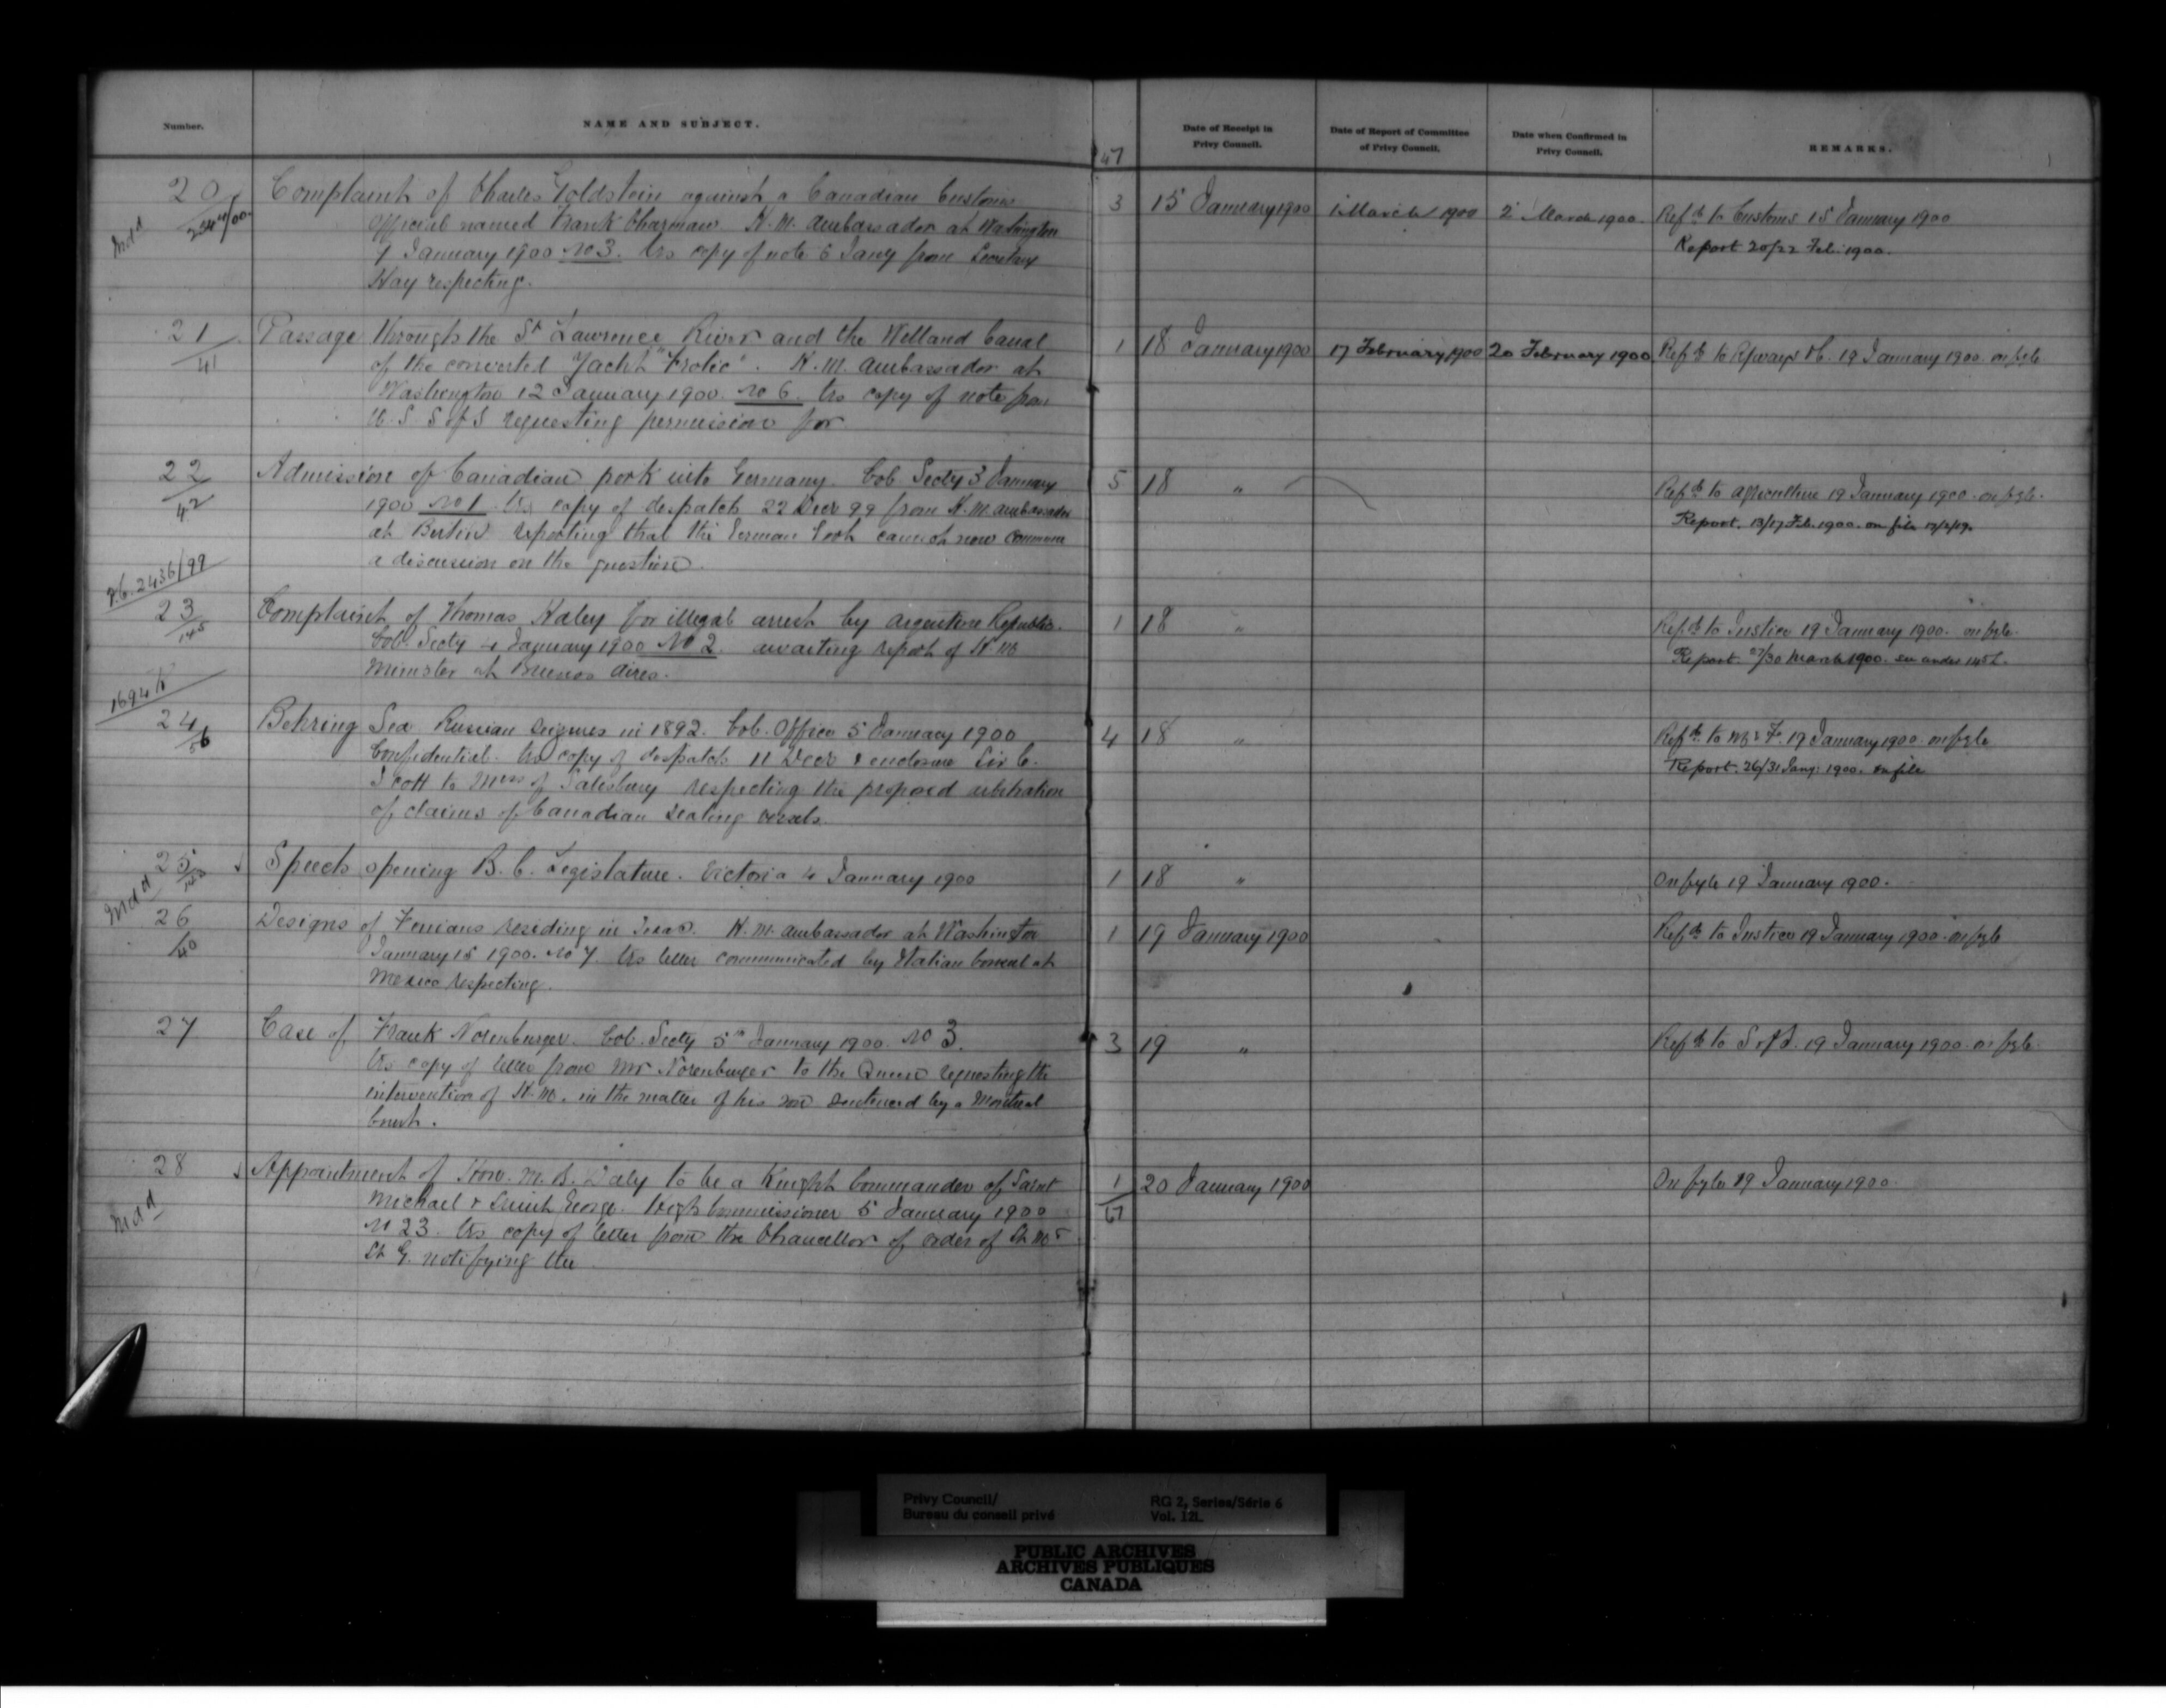 Number.
NAME AND SUBJECT.
Date of Receipt in Privy Council.
Date of Report of Committee of Privy Council.
Date when Confirmed in Privy Council.
REMARKS.
47
20 Complaint of Charles Goldstein against a Canadian Customs 3 15 January 1900 1 March 1900 2 March 1900 Refd to Customs 15 January 1900
Official named Frank Charman. H.M. Ambassador at Washington Report 20/22 Feb. 1900.
9 January 1900 No 3. Trs copy of note 5 Jany from Secretary
Hay respecting.
21 Passage through the St Lawrence River and the Welland Canal 1 18 January 1900 17 February 1900 20 February 1900 Refd to Rlways &C. 19 January 1900. on fyle
41 of the converted Yacht "Frolic". H.M. Ambassador at
Washington 12 January 1900. No 6. Trs copy of note from
U.S. S of S requesting permission for
22 Admission of Canadian pork into Germany. Col. Secty 3 January 5 18 " Refd to Agriculture 19 January 1900. on fyle.
42 1900 No 1 Trs copy of despatch 22 Decr 99 from H.M. Ambassador Report. 13/17 Feb. 1900. on file
at Berlin reporting that the German Govt cannot now commence
a discussion on the question.
2436/99
23 Complaint of Thomas Haley for illegal arrest by Argentine Republic. 1 18 " Refd to Justice 19 January 1900. on fyle.
145 Col. Secty 4 January 1900 No 2. awaiting report of H M Report 27/30 March 1900. see under 145
Minister at Buenos Aires.
1694
24 Behring Sea Russian seizures in 1892. Col. Office 5 January 1900 4 18 " Refd to M & F. 19 January 1900. on fyle
56 Confidential. Trs copy of despatch 11 Decr & enclosure Sir C. Report. 26/31 Jany: 1900. on file
Scott to Mess of Salisbury respecting the proposed arbitration
of claims of Canadian sealing vessels.
25 Speech opening B.C. Legislature. Victoria 4 January 1900 1 18 " On fyle 19 January 1900.
26 Designs of Fenians residing in Texas. H.M. Ambassador at Washington 1 19 January 1900 Refd to Justice 19 January 1900. on fyle
40 January 15 1900. No 7. Trs letter communicated by Italian Consul at
Mexico respecting.
27 Case of Frank Norenburger. Col. Secty 5th January 1900. No 3. 3 19 " Refd to S of S. 19 January 1900. on fyle.
Trs copy of letter from Mr Norenburger to the Queen requesting the
intervention of H.M. in the matter of his son sentenced by a Montreal
Court.
28 Appointment of Hon. M.B. Daly to be a Knight Commander of Saint 1 20 January 1900 On fyle 19 January 1900.
Michael & Saint George. High Commissioner 5 January 1900
No 23. Trs copy of letter from the Chancellor of order of St M &
St G. notifying the
Privy Council/
Bureau du conseil privé
RG 2, Series/Série 6
Vol. 12L
PUBLIC ARCHIVES
ARCHIVES PUBLIQUES
CANADA